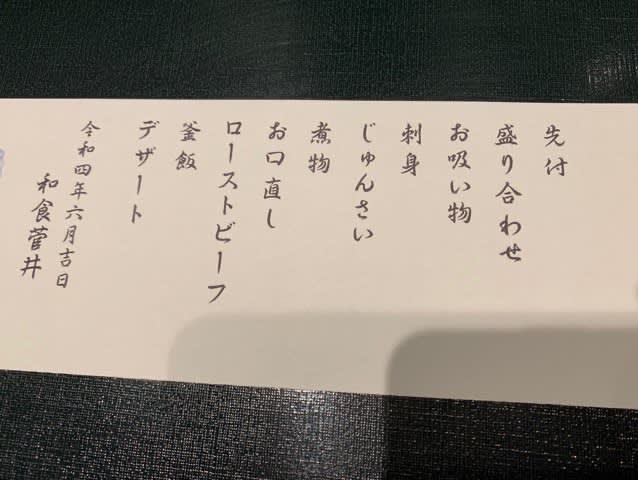 先付
盛り合わせ
お吸い物
刺身
じゅんさい
煮物
お口直し
ローストビーフ
釜飯
デザート
令和四年六月吉日
和食菅井